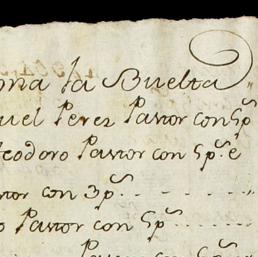 ona la Buelta
uel Perez Pastor con 5p^s
Teodoro Pastor con 5p^s e
tor con 3p^s
o Pastor con 5p^s